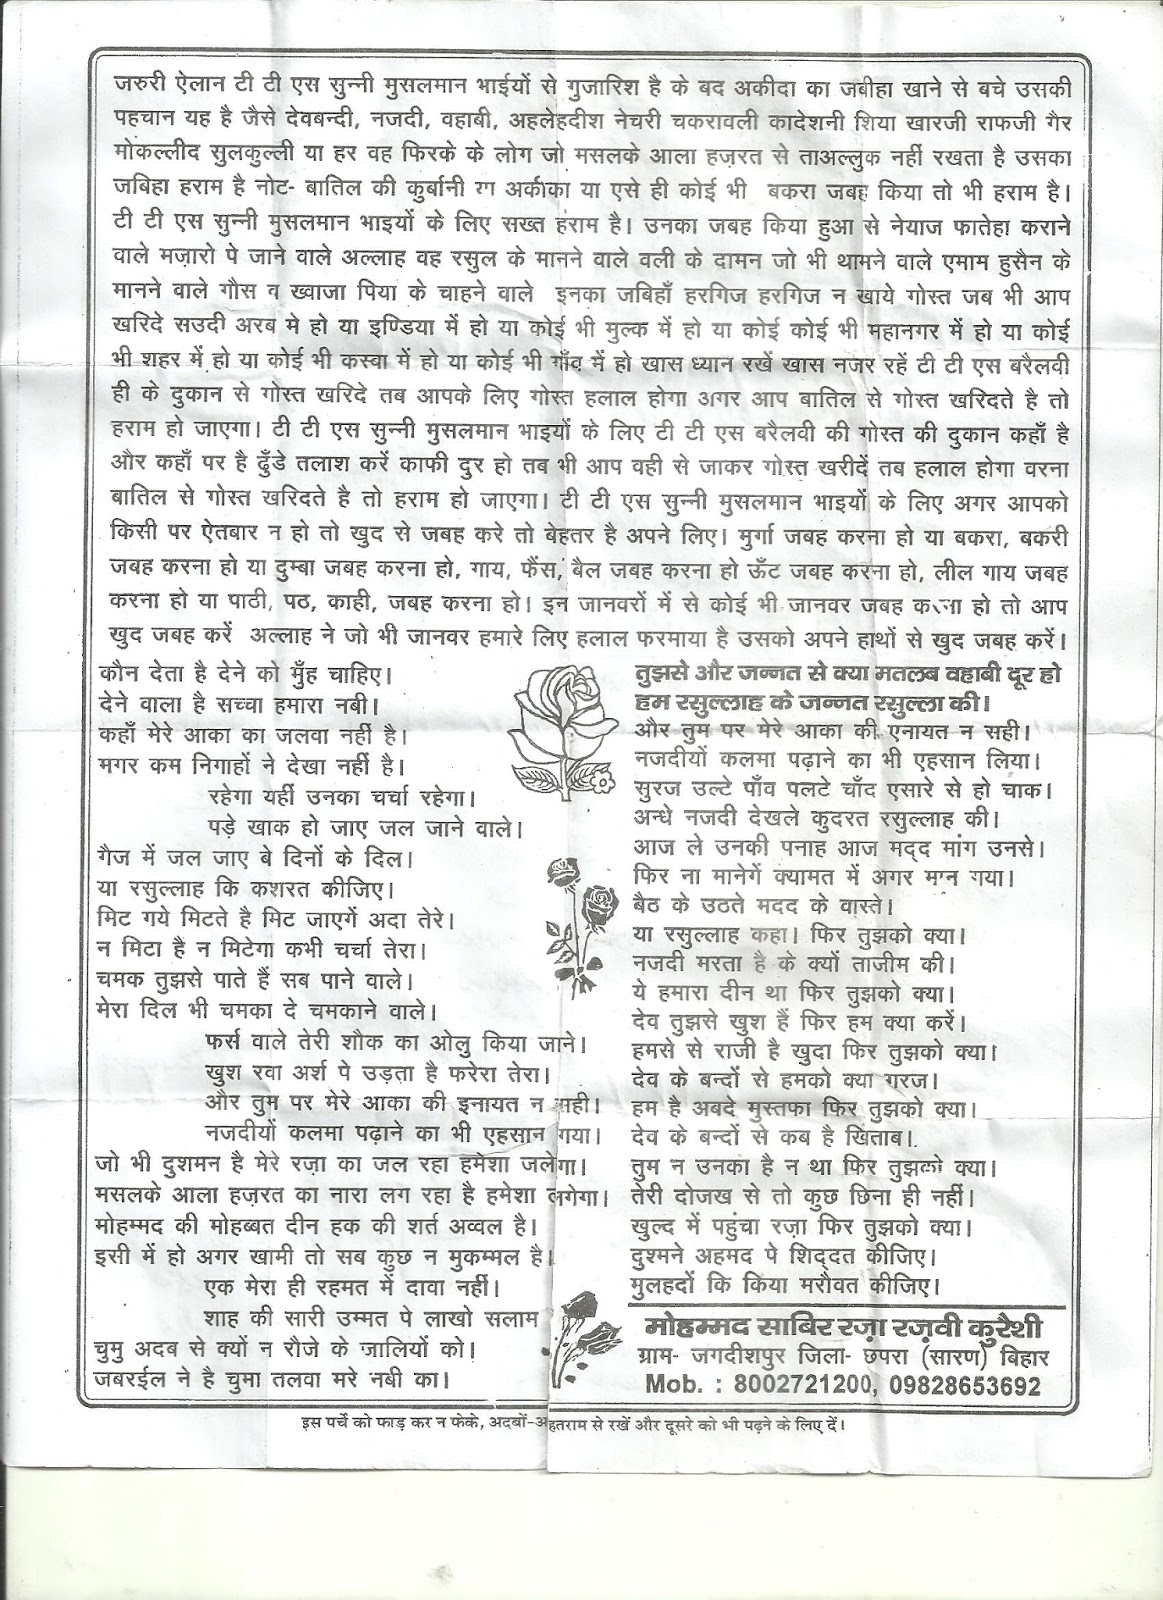 जरुरी ऐलान टी टी एस सुन्नी मुसलमान भाईयों से गुजारिश है के बद अकीदा का जबीहा खाने से बचे उसकी
पहचान यह है जैसे देवबन्दी, नजदी, वहाबी, अहलेहदीश नेचरी चकरावली कादेशनी शिया खारजी राफजी गैर
मोकल्लीद सुलकुल्ली या हर वह फिरके के लोग जो मसलके आला हज़रत से ताअल्लुक नहीं रखता है उसका
जबिहा हराम है नोट- बातिल की कुर्बानी या अकीका या एसे ही कोई भी बकरा जबह किया तो भी हराम है।
टी टी एस सुन्नी मुसलमान भाइयों के लिए सख्त हराम है। उनका जबह किया हुआ से नेयाज फातेहा कराने
वाले मज़ारो पे जाने वाले अल्लाह वह रसुल के मानने वाले वली के दामन जो भी थामने वाले एमाम हुसैन के
मानने वाले गौस व ख्वाजा पिया के चाहने वाले इनका जबिहाँ हरगिज हरगिज न खाये गोस्त जब भी आप
खरिदे सउदी अरब मे हो या इण्डिया में हो या कोई भी मुल्क में हो या कोई कोई भी महानगर में हो या कोई
भी शहर में हो या कोई भी कस्बा में हो या कोई भी गाँव में हो खास ध्यान रखें खास नजर रहें टी टी एस बरैलवी
ही के दुकान से गोस्त खरिदे तब आपके लिए गोस्त हलाल होगा अगर आप बातिल से गोस्त खरिदते है तो
हराम हो जाएगा। टी टी एस सुन्नी मुसलमान भाइयों के लिए टी टी एस बरैलवी की गोस्त की दुकान कहाँ है
और कहाँ पर है ढुँडे तलाश करें काफी दुर हो तब भी आप वही से जाकर गोस्त खरीदें तब हलाल होगा वरना
बातिल से गोस्त खरिदते है तो हराम हो जाएगा। टी टी एस सुन्नी मुसलमान भाइयों के लिए अगर आपको
किसी पर ऐतबार न हो तो खुद से जबह करे तो बेहतर है अपने लिए। मुर्गा जबह करना हो या बकरा, बकरी
जबह करना हो या दुम्बा जबह करना हो, गाय, फैंस, बैल जबह करना हो ऊँट जबह करना हो, लील गाय जबह
करना हो या पाठी, पठ, काही, जबह करना हो। इन जानवरों में से कोई भी जानवर जबह करना हो तो आप
खुद जबह करें अल्लाह ने जो भी जानवर हमारे लिए हलाल फरमाया है उसको अपने हाथों से खुद जबह करें।
कौन देता है देने को मुँह चाहिए।
देने वाला है सच्चा हमारा नबी।
कहाँ मेरे आका का जलवा नहीं है।
मगर कम निगाहों ने देखा नहीं है।
रहेगा यहीं उनका चर्चा रहेगा।
पड़े खाक हो जाए जल जाने वाले।
गैज में जल जाए बे दिनों के दिल।
या रसुल्लाह कि कशरत कीजिए।
मिट गये मिटते है मिट जाएगें अदा तेरे।
न मिटा है न मिटेगा कभी चर्चा तेरा।
चमक तुझसे पाते हैं सब पाने वाले।
मेरा दिल भी चमका दे चमकाने वाले।
फर्स वाले तेरी शौक का ओलु किया जाने।
खुश रवा अर्श पे उड़ता है फरेरा तेरा।
और तुम पर मेरे आका की इनायत न सही।
नजदीयों कलमा पढ़ाने का भी एहसान गया।
जो भी दुशमन है मेरे रज़ा का जल रहा हमेशा जलेगा।
मसलके आला हज़रत का नारा लग रहा है हमेशा लगेगा।
मोहम्मद की मोहब्बत दीन हक की शर्त अव्वल है।
इसी में हो अगर खामी तो सब कुछ न मुकम्मल है।
एक मेरा ही रहमत में दावा नहीं।
शाह की सारी उम्मत पे लाखो सलाम
चुमु अदब से क्यों न रौजे के जालियों को।
जबरईल ने है चुमा तलवा मरे नबी का।
तुझसे और जन्नत से क्या मतलब वहाबी दूर हो
हम रसुल्लाह के जन्नत रसुल्ला की।
और तुम पर मेरे आका की एनायत न सही।
नजदीयों कलमा पढ़ाने का भी एहसान लिया।
सुरज उल्टे पाँव पलटे चाँद एसारे से हो चाक।
अन्धे नजदी देखले कुदरत रसुल्लाह की।
आज ले उनकी पनाह आज मद्द मांग उनसे।
फिर ना मानेगें क्यामत में अगर मान गया।
बैठ के उठते मदद के वास्ते।
या रसुल्लाह कहा। फिर तुझको क्या।
नजदी मरता है के क्यों ताजीम की।
ये हमारा दीन था फिर तुझको क्या।
देव तुझसे खुश हैं फिर हम क्या करें।
हमसे से राजी है खुदा फिर तुझको क्या।
देव के बन्दों से हमको क्या गरज।
हम है अबदे मुस्तफा फिर तुझको क्या।
देव के बन्दों से कब है खिताब।
तुम न उनका है न था फिर तुझको क्या।
तेरी दोजख से तो कुछ छिना ही नहीं।
खुल्द में पहुंचा रज़ा फिर तुझको क्या।
दुश्मने अहमद पे शिद्दत कीजिए।
मुलहदों कि किया मरौवत कीजिए।
मोहम्मद साबिर रज़ा रज़वी कुरैशी
ग्राम- जगदीशपुर जिला- छपरा (सारण) बिहार
Mob. : 8002721200, 09828653692
इस पर्चे को फाड़ कर न फेके, अदबों-अहतराम से रखें और दूसरे को भी पढ़ने के लिए दें।